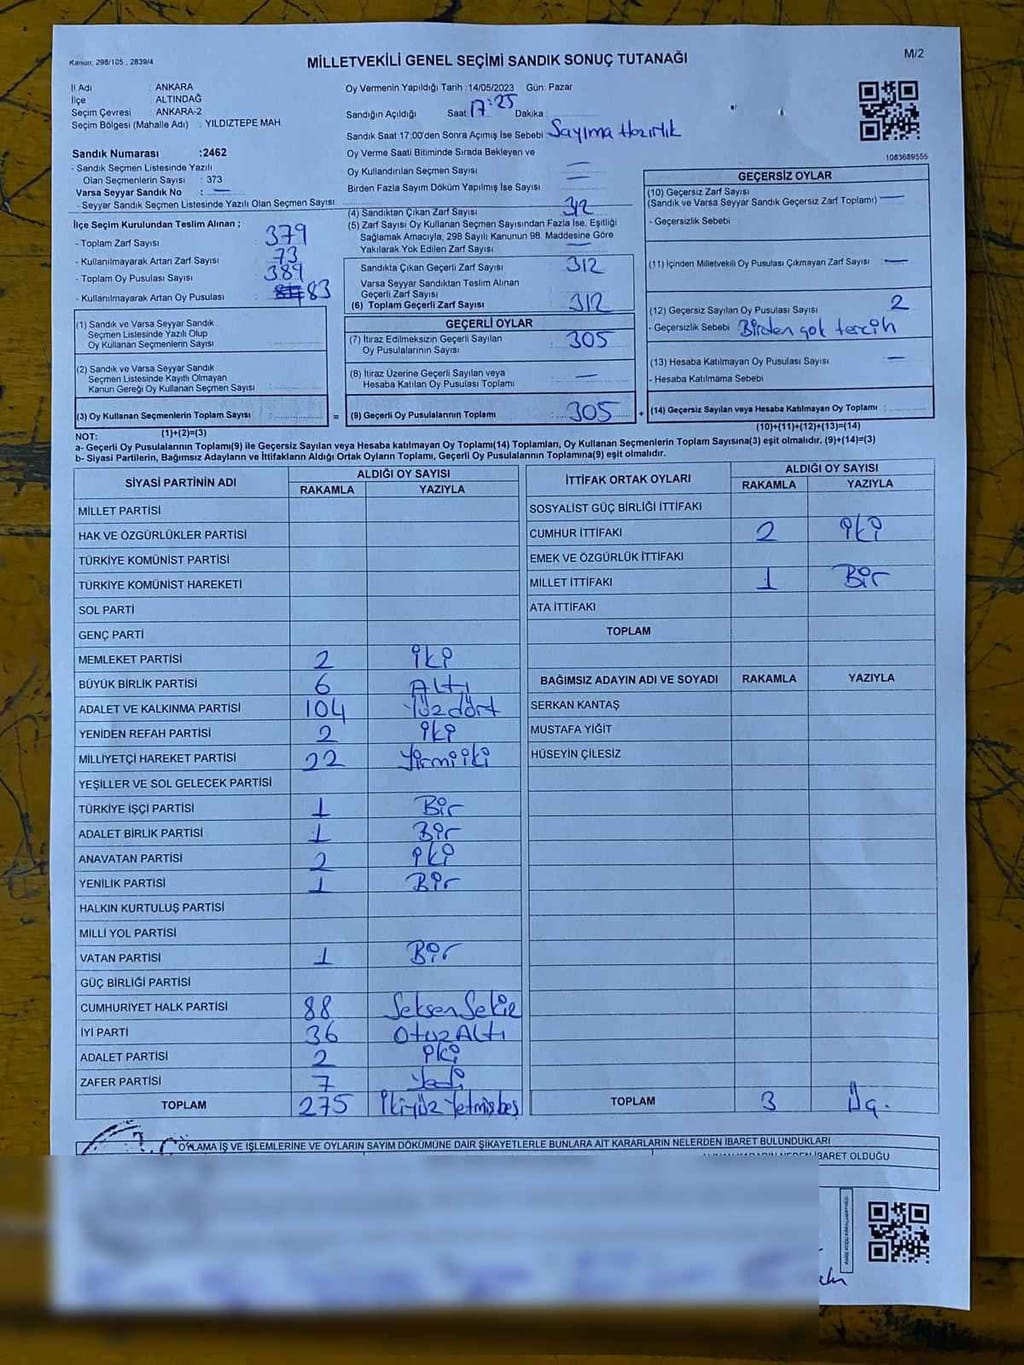 Kanun: 298/105 , 2839/4
MİLLETVEKİLİ GENEL SEÇİMİ SANDIK SONUÇ TUTANAĞI
M/2
İl Adı : ANKARA
İlçe : ALTINDAĞ
Seçim Çevresi : ANKARA-2
Seçim Bölgesi (Mahalle Adı) : YILDIZTEPE MAH
Oy Vermenin Yapıldığı Tarih :14/05/2023 Gün: Pazar
Sandığın Açıldığı Saat 17:25 Dakika
Sandık Saat 17:00'den Sonra Açımış İse Sebebi Sayıma Hazırlık
Oy Verme Saati Bitiminde Sırada Bekleyen ve
Oy Kullandırılan Seçmen Sayısı —
Birden Fazla Sayım Döküm Yapılmış İse Sayısı —
1083689555
Sandık Numarası :2462
- Sandık Seçmen Listesinde Yazılı
Olan Seçmenlerin Sayısı : 373
Varsa Seyyar Sandık No : —
- Seyyar Sandık Seçmen Listesinde Yazılı Olan Seçmen Sayısı
İlçe Seçim Kurulundan Teslim Alınan ;
- Toplam Zarf Sayısı : 379
- Kullanılmayarak Artan Zarf Sayısı : 73
- Toplam Oy Pusulası Sayısı : 389
- Kullanılmayarak Artan Oy Pusulası : 83
(1) Sandık ve Varsa Seyyar Sandık
Seçmen Listesinde Yazılı Olup
Oy Kullanan Seçmenlerin Sayısı
(2) Sandık ve Varsa Seyyar Sandık
Seçmen Listesinde Kayıtlı Olmayan
Kanun Gereği Oy Kullanan Seçmen Sayısı :
(3) Oy Kullanan Seçmenlerin Toplam Sayısı :
(1)+(2)=(3)
(4) Sandıktan Çıkan Zarf Sayısı 312
(5) Zarf Sayısı Oy Kullanan Seçmen Sayısından Fazla İse, Eşitliği
Sağlamak Amacıyla, 298 Sayılı Kanunun 98. Maddesine Göre
Yakılarak Yok Edilen Zarf Sayısı —
Sandıkta Çıkan Geçerli Zarf Sayısı 312
Varsa Seyyar Sandıktan Teslim Alınan
Geçerli Zarf Sayısı
(6) Toplam Geçerli Zarf Sayısı 312
GEÇERLİ OYLAR
(7) İtiraz Edilmeksizin Geçerli Sayılan
Oy Pusulalarının Sayısı 305
(8) İtiraz Üzerine Geçerli Sayılan veya
Hesaba Katılan Oy Pusulası Toplamı —
= (9) Geçerli Oy Pusulalarının Toplamı 305
GEÇERSİZ OYLAR
(10) Geçersiz Zarf Sayısı
(Sandık ve Varsa Seyyar Sandık Geçersiz Zarf Toplamı) —
- Geçersizlik Sebebi
(11) İçinden Milletvekili Oy Pusulası Çıkmayan Zarf Sayısı —
(12) Geçersiz Sayılan Oy Pusulası Sayısı 2
- Geçersizlik Sebebi Birden çok tercih
(13) Hesaba Katılmayan Oy Pusulası Sayısı —
- Hesaba Katılmama Sebebi
+ (14) Geçersiz Sayılan veya Hesaba Katılmayan Oy Toplamı :
(10)+(11)+(12)+(13)=(14)
NOT:
a- Geçerli Oy Pusulalarının Toplamı(9) ile Geçersiz Sayılan veya Hesaba katılmayan Oy Toplamı(14) Toplamları, Oy Kullanan Seçmenlerin Toplam Sayısına(3) eşit olmalıdır. (9)+(14)=(3)
b- Siyasi Partilerin, Bağımsız Adayların ve İttifakların Aldığı Ortak Oyların Toplamı, Geçerli Oy Pusulalarının Toplamına(9) eşit olmalıdır.
SİYASİ PARTİNİN ADI ALDIĞI OY SAYISI
RAKAMLA YAZIYLA
MİLLET PARTİSİ
HAK VE ÖZGÜRLÜKLER PARTİSİ
TÜRKİYE KOMÜNİST PARTİSİ
TÜRKİYE KOMÜNİST HAREKETİ
SOL PARTİ
GENÇ PARTİ
MEMLEKET PARTİSİ 2 iki
BÜYÜK BİRLİK PARTİSİ 6 Altı
ADALET VE KALKINMA PARTİSİ 104 Yüzdört
YENİDEN REFAH PARTİSİ 2 iki
MİLLİYETÇİ HAREKET PARTİSİ 22 Yirmi iki
YEŞİLLER VE SOL GELECEK PARTİSİ
TÜRKİYE İŞÇİ PARTİSİ 1 Bir
ADALET BİRLİK PARTİSİ 1 Bir
ANAVATAN PARTİSİ 2 iki
YENİLİK PARTİSİ 1 Bir
HALKIN KURTULUŞ PARTİSİ
MİLLİ YOL PARTİSİ
VATAN PARTİSİ 1 Bir
GÜÇ BİRLİĞİ PARTİSİ
CUMHURİYET HALK PARTİSİ 88 Seksen Sekiz
İYİ PARTİ 36 Otuz Altı
ADALET PARTİSİ 2 iki
ZAFER PARTİSİ 7 Yedi
TOPLAM 275 ikiyüz Yetmişbeş
İTTİFAK ORTAK OYLARI ALDIĞI OY SAYISI
RAKAMLA YAZIYLA
SOSYALİST GÜÇ BİRLİĞİ İTTİFAKI
CUMHUR İTTİFAKI 2 iki
EMEK VE ÖZGÜRLÜK İTTİFAKI
MİLLET İTTİFAKI 1 Bir
ATA İTTİFAKI
TOPLAM
BAĞIMSIZ ADAYIN ADI VE SOYADI RAKAMLA YAZIYLA
SERKAN KANTAŞ
MUSTAFA YİĞİT
HÜSEYİN ÇİLESİZ
TOPLAM 3 Üç.
OYLAMA İŞ VE İŞLEMLERİNE VE OYLARIN SAYIM DÖKÜMÜNE DAİR ŞİKAYETLERLE BUNLARA AİT KARARLARIN NELERDEN İBARET BULUNDUKLARI
İBARET OLDUĞU